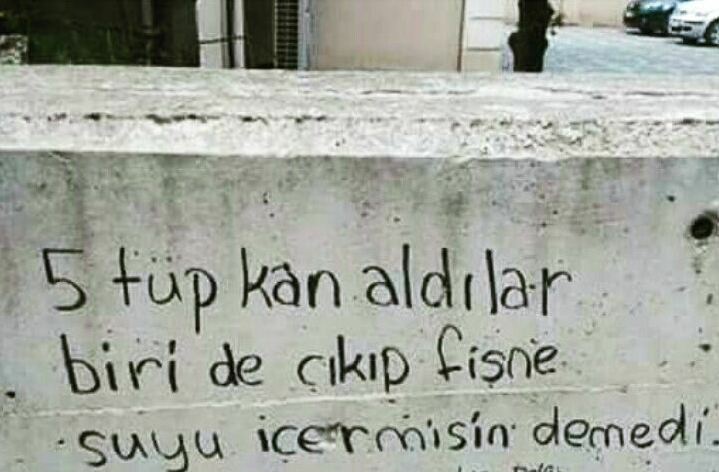 5 tüp kan aldılar
biri de çıkıp fişne
suyu içermisin demedi.